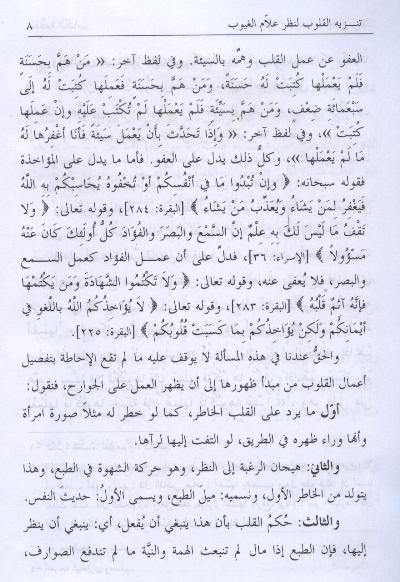 تنـزيه القلوب لنظر علاّم الغيوب ٨
العفو عن عمل القلب وهمِّه بالسيئة. وفي لفظ آخر: « مَنْ هَمَّ بِحَسَنَةٍ
فَلَمْ يَعْمَلْهَا كُتِبَتْ لَهُ حَسَنَةً، وَمَنْ هَمَّ بِحَسَنَةٍ فَعَمِلَهَا كُتِبَتْ لَهُ إِلَى
سَبْعمائَةِ ضِعْفٍ، وَمَنْ هَمَّ بِسَيِّئَةٍ فَلَمْ يَعْمَلْهَا لَمْ تُكْتَبْ عَلَيْهِ وَإِنْ عَمِلَهَا
كُتِبَتْ »، وفي لفظ آخر: « وَإِذَا تَحَدَّثَ بِأَنْ يَعْمَلَ سَيِّئَةً فَأَنَا أَغْفِرُهَا لَهُ
مَا لَمْ يَعْمَلْهَا »، وكلُّ ذلك يدل على العفو. فأما ما يدل على المؤاخذة
فقوله سبحانه: ﴿ وإِنْ تُبْدُوا مَا فِي أَنْفُسِكُمْ أَوْ تُخْفُوهُ يُحَاسِبْكُمْ بِهِ اللَّهُ
فَيَغْفِرُ لِمَنْ يَشَاءُ وَيُعَذِّبُ مَنْ يَشَاءُ ﴾ [البقرة: ٢٨٤]، وقوله تعالى: ﴿ وَلَا
تَقْفُ مَا لَيْسَ لَكَ بِهِ عِلْمٌ إِنَّ السَّمْعَ وَالبَصَرَ وَالفُؤَادَ كُلُّ أُولَئِكَ كَانَ عَنْهُ
مَسْؤُولاً ﴾ [الإسراء: ٣٦]، فدلَّ على أن عمـــل الفؤاد كعمل الســـمع
والبصر، فلا يُعفى عنه، وقوله تعالى: ﴿ وَلَا تَكْتُمُوا الشَّهَادَةَ وَمَن يَكْتُمْهَا
فَإِنَّهُ آثِمٌ قَلْبُهُ ﴾ [البقرة: ٢٨٣]، وقوله تعالى: ﴿ لَا يُؤَاخِذُكُمُ اللَّهُ بِاللَّغوِ في
أَيْمَانِكُمْ وَلَكِنْ يُؤَاخِذُكُمْ بِمَا كَسَبَتْ قُلُوبُكُمْ ﴾ [البقرة: ٢٢٥].
والحقُّ عندنا في هذه المسألة لا يوقف عليه ما لم تقع الإحاطة بتفصيل
أعمال القلوب من مبدأ ظهورها إلى أن يظهر العمل على الجوارح، فنقول:
أوّل ما يرد على القلب الخاطر، كما لو خطر له مثلاً صورة امرأة
وأنها وراء ظهره في الطريق، لو التفت إليها لرآها.
والثاني: هيجان الرغبة إلى النظر، وهو حركة الشهوة في الطبع، وهذا
يتولد من الخاطر الأول، ونسميه: ميلَ الطبع، ويسمى الأولُ: حديث النفس.
والثالث: حُكمُ القلب بأن هذا ينبغي أن يُفعل، أي: ينبغي أن ينظر
إليها، فإن الطبع إذا مال لم تنبعث الهمة والنيَّة ما لم تندفع الصوارف،